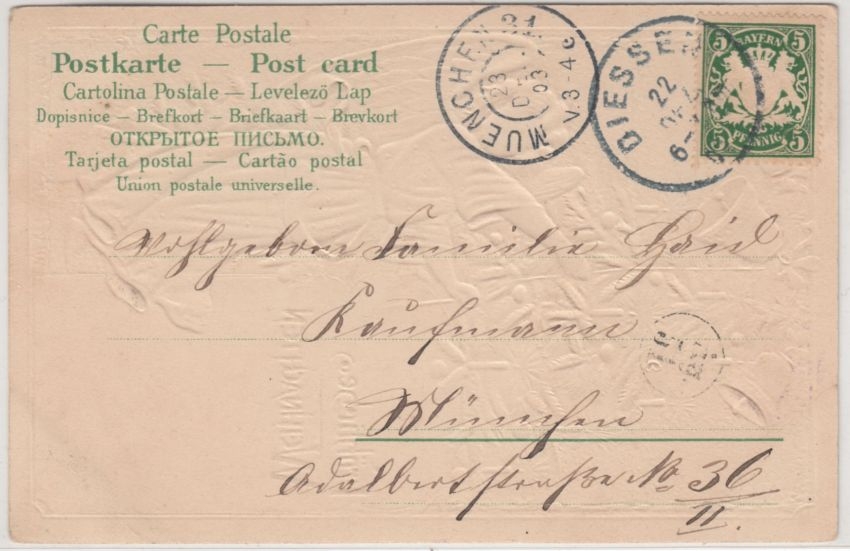 Carte Postale
Postkarte — Post card
Cartolina Postale — Levelező Lap
Dopisnice — Brefkort — Briefkaart — Brevkort
ОТКРЫТОЕ ПИСЬМО.
Tarjeta postal — Cartão postal
Union postale universelle.
MUENCHEN 31.
23
DEZ
03
V.3-4
DIESSEN
22
DEZ
6
5 BAYERN 5
5 PFENNIG 5
Wohlgeborn Familie Haid
Kaufmann
München
Adalbertstraße No 36
II.